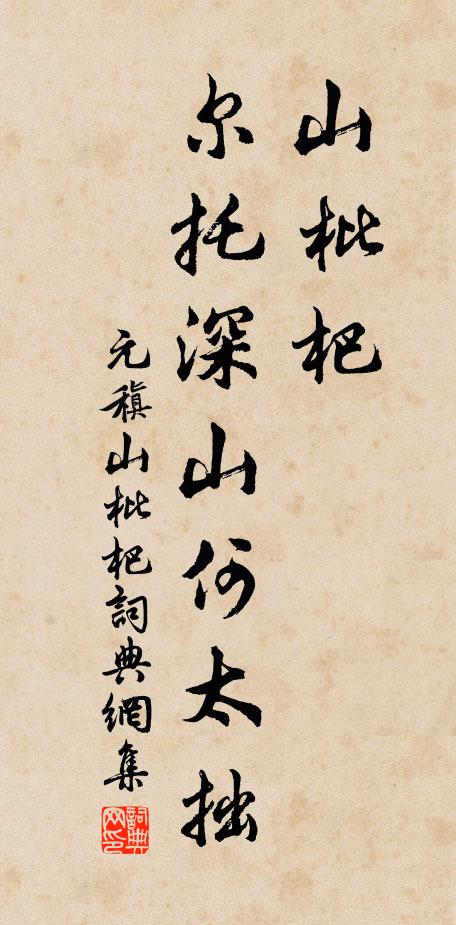 山枇杷
尔托深山何太拙
元稹山枇杷詞典網集
詞典
网印